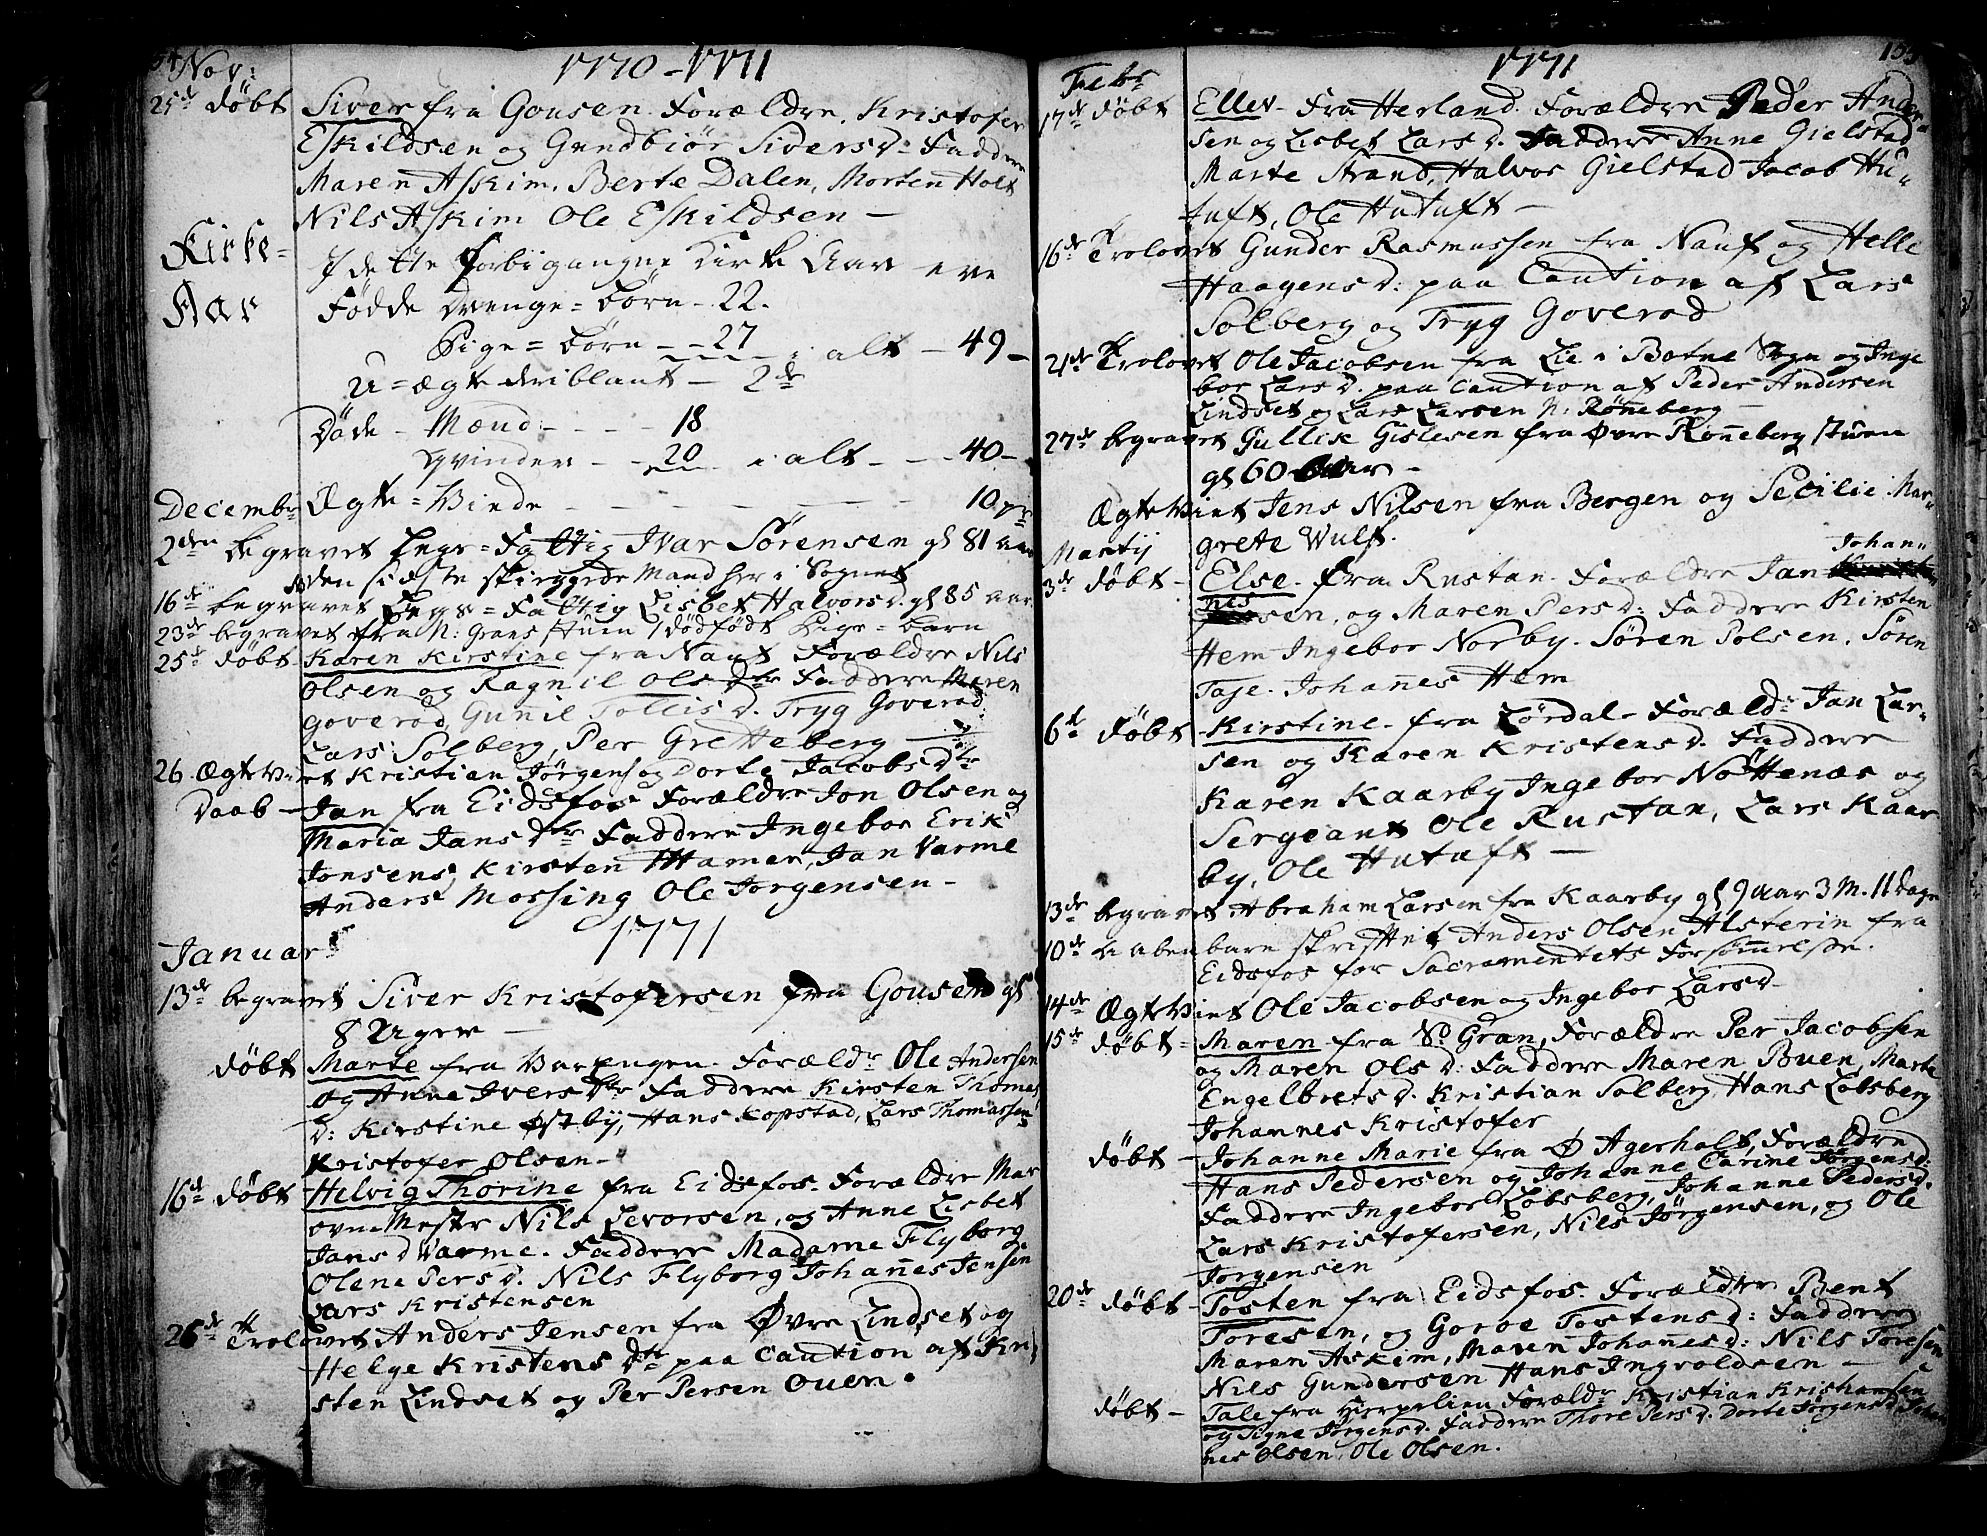 54 Nov: 1770-1771
25de døbt Siver fra Gousen. Forældre. Kristofer
Eskildsen og Gundbiør Siversd. Faddere
Maren Askim, Berte Dalen, Morten Holt
Nils Askim Ole Eskildsen —
Kirke=
Aar
I dette forbigangne Kirke Aar ere
Fødde Drenge=Børn - 22.
Pige=Børn - - 27 i alt - 49 -
U=ægte deriblant - 2de
Døde - Mænd - - - - 18
Qvinder - - 20 i alt - - 40 -
Decembr Ægte=Viede - - - - - 10 pr
2den Begravet Legs=Fattig Ivar Sørensen gl 81 aar
den sidste skieggede Mand her i Sognet
16de begravet Legs=Fattig Lisbet Halvorsd. gl 85 aar.
23de begravet fra N: Grans stuen 1 dødfødt Pige=Barn
25de døbt Karen Kirstine fra Nauf Forældre Nils
Olsen og Ragnil Olsdtr Faddere Maren
Goverod, Gunil Tollisd. Tryg Goverod
Lars Solberg, Per Gretteberg —
26 Ægte Viet Kristian Jørgens og Dorte Jacobsdtr
Daab - Jan fra Eidsfos Forældre Jon Olsen og
Maria Jansdtr Faddere Ingebor Erik
Jonsens, Kirsten Hamer, Jan Varme
Anders Mossing Ole Jorgensen -
Januar 1771
13de begravet Siver Kristofersen fra Gousen gl
8 Uger —
døbt Marte fra Varpengen. Forældr Ole Andersen
og Anne Iversdtr Faddere Kirsten Thomas
D: Kirstine Østby, Hans Kopstad, Lars Thomassen
Kristofer Olsen -
16d døbt Helvig Thorine fra Eidsfos. Forældre Mas
ovne Mestr Nils Levorsen, og Anne Lisbet
Jansd Varme. Faddere Madame Flyborg
Olene Persd. Nils Flyborg Johannes Jensen
Lars Kristensen
26de Trolovet Anders Jensen fra Øvre Lindset og
Helge Kristensdtr paa Caution af Kri
sten Lindset og Per Persen Ouen.
Febr 1771 155
17de døbt Ellev - Fra Herland. Forældre Peder Ander=
sen og Lisbet Larsd. Faddere Anne Gielstad
Marte Strand, Halvor Gielstad Jacob Hu=
tuft, Ole Hutuft —
16de Trolovet Gunder Rasmussen fra Nauf og Helle
Haagensd: paa Caution af Lars
Solberg og Tryg Goverod
21de Trolovet Ole Jacobsen fra Lie i Botne Sogn og Inge
bor Larsd. paa Caution af Peder Andersen
Lindset og Lars Larsen N: Røneberg —
27de begravet Gullik Gislesen fra Øvre Rønneberg stuen
gl 60 Aar -
Ægte Viet Jens Nilsen fra Bergen og Secilie Mar=
grete Wulf.
Martij
3de døbt - Else - fra Rustan - Forældre Jan Johan=
nes
sen, og Maren Persd: Faddere Kirsten
Hem Ingebor Norby. Søren Polsen, Søren
Taje. Johannes Hem
6d døbt Kirstine - fra Lørdal - Forældr Jan Lar=
sen og Karen Kristensd. Faddere
Karen Kaarby Ingebor Nøttenæs og
Sergeant Ole Rustan, Lars Kaar
by, Ole Hutuft —
13de begravet Abraham Larsen fra Kaarby gl 9 aar 3 M. 11 Dage
10de Aabenbare skriftet Anders Olsen Alsterin fra
Eidsfos for Sacramentets Forsømmelse.
14de Ægte Viet Ole Jacobsen og Ingebor Larsd
15de døbt - Maren fra S. Gran, Forældre Per Jacobsen
og Maren Olsd: Faddere Maren Buen, Marte
Engelbretsd. Kristian Solberg, Hans Løbsberg
Johannes Kristofer
døbt - Johanne Marie fra Ø Agerholt, Forældre
Hans Pedersen og Johanne Carine Jørgensd:
Faddere Ingebor Løbsberg, Johanne Pedersd.
Lars Kristofersen, Nils Jørgensen, og Ole
Jorgensen
20de døbt - Tosten fra Eidsfos. Forældre Bent
Toresen, og Goroe Tostensd: Faddere
Maren Askim, Maren Johannesd: Nils Toresen
Nils Gundersen Hans Ingvoldsen —
døbt - Tale fra Hierpelien Forældr Kristian Kristiansen
og Signe Jørgensd. Faddere Thore Persd. Dorte Jørgensd. Johan
nes Olsen, Ole Olsen.